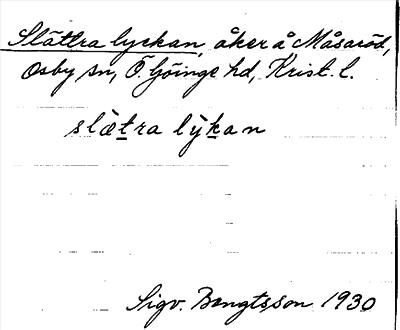 Slättra lyckan, åker å Måsaröd,
Osby sn, Ö. Göinge hd, Krist. l.
slæ̀t̲ra lỳk̲an
Sigv. Bengtsson 1930